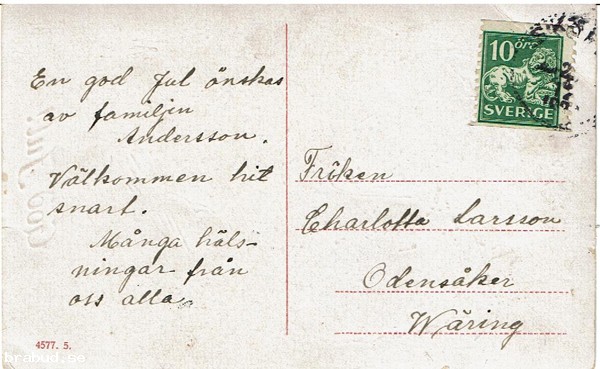 En god Jul önskas
av familjen
Andersson.
Välkommen hit
snart.
Många häls-
ningar från
oss alla.
4577. 5.
brabud.se
10 ÖRE
SVERIGE
Fröken
Charlotta Larsson
Odensåker
Wäring